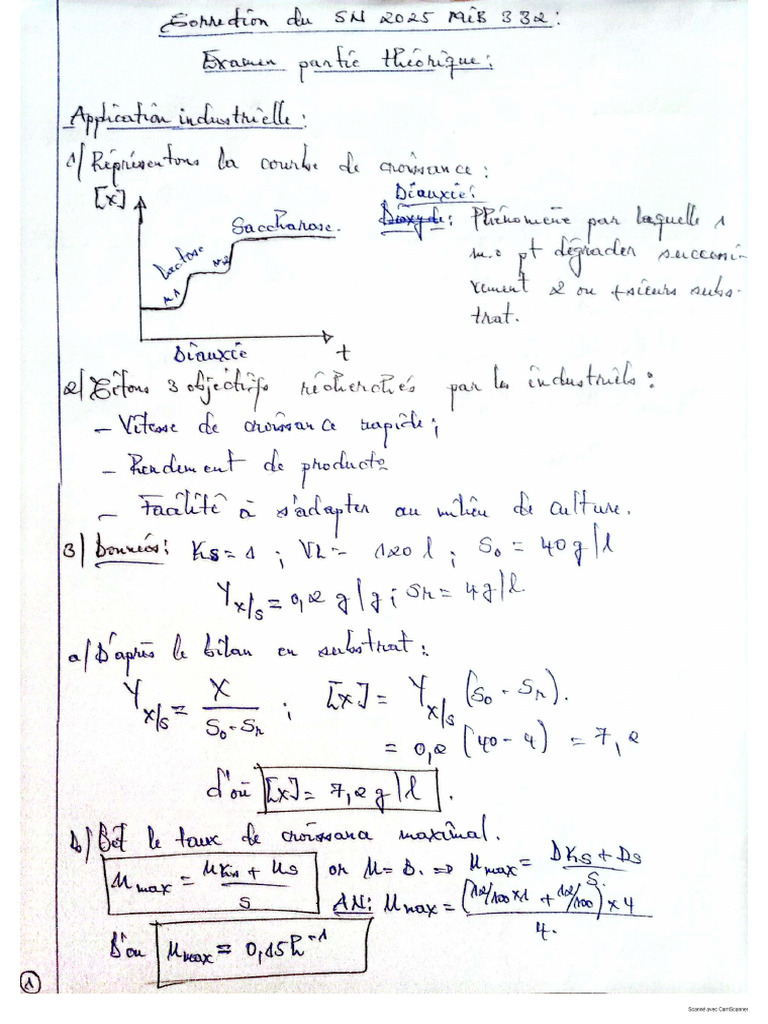 Correction du SN 2025 MIB 332:
Examen partie théorique:
Application industrielle:
1/ Représentons la courbe de croissance:
[x]
Saccharose.
Lactose
μ1
μ2
Diauxie
t
Diauxie:
Dioxyde: Phénomène par laquelle 1
m.o pt dégrader successi-
vement 2 ou +sieurs subs-
trat.
2/ Citons 3 objectifs recherchés par les industriels:
– Vitesse de croissance rapide;
– Rendement de product°
– Facilité à s'adapter au milieu de culture.
3/ Données: Ks = 1 ; VL = 120 l ; S0 = 40 g/l
Yx/s = 0,2 g/g ; Sr = 4 g/l.
a/ D'après le bilan en substrat:
Yx/s = X / (S0 - Sr) ; [X] = Yx/s (S0 - Sr).
= 0,2 (40 - 4) = 7,2
d'où [X] = 7,2 g/l.
b/ Det le taux de croissance maximal.
μmax = (μKs + μs) / S or μ = D. ⇒ μmax = (DKs + Ds) / S.
AN: μmax = (12/100 x 1 + 12/100) x 4 / 4.
D'où μmax = 0,15 h⁻¹
1
Scanné avec CamScanner